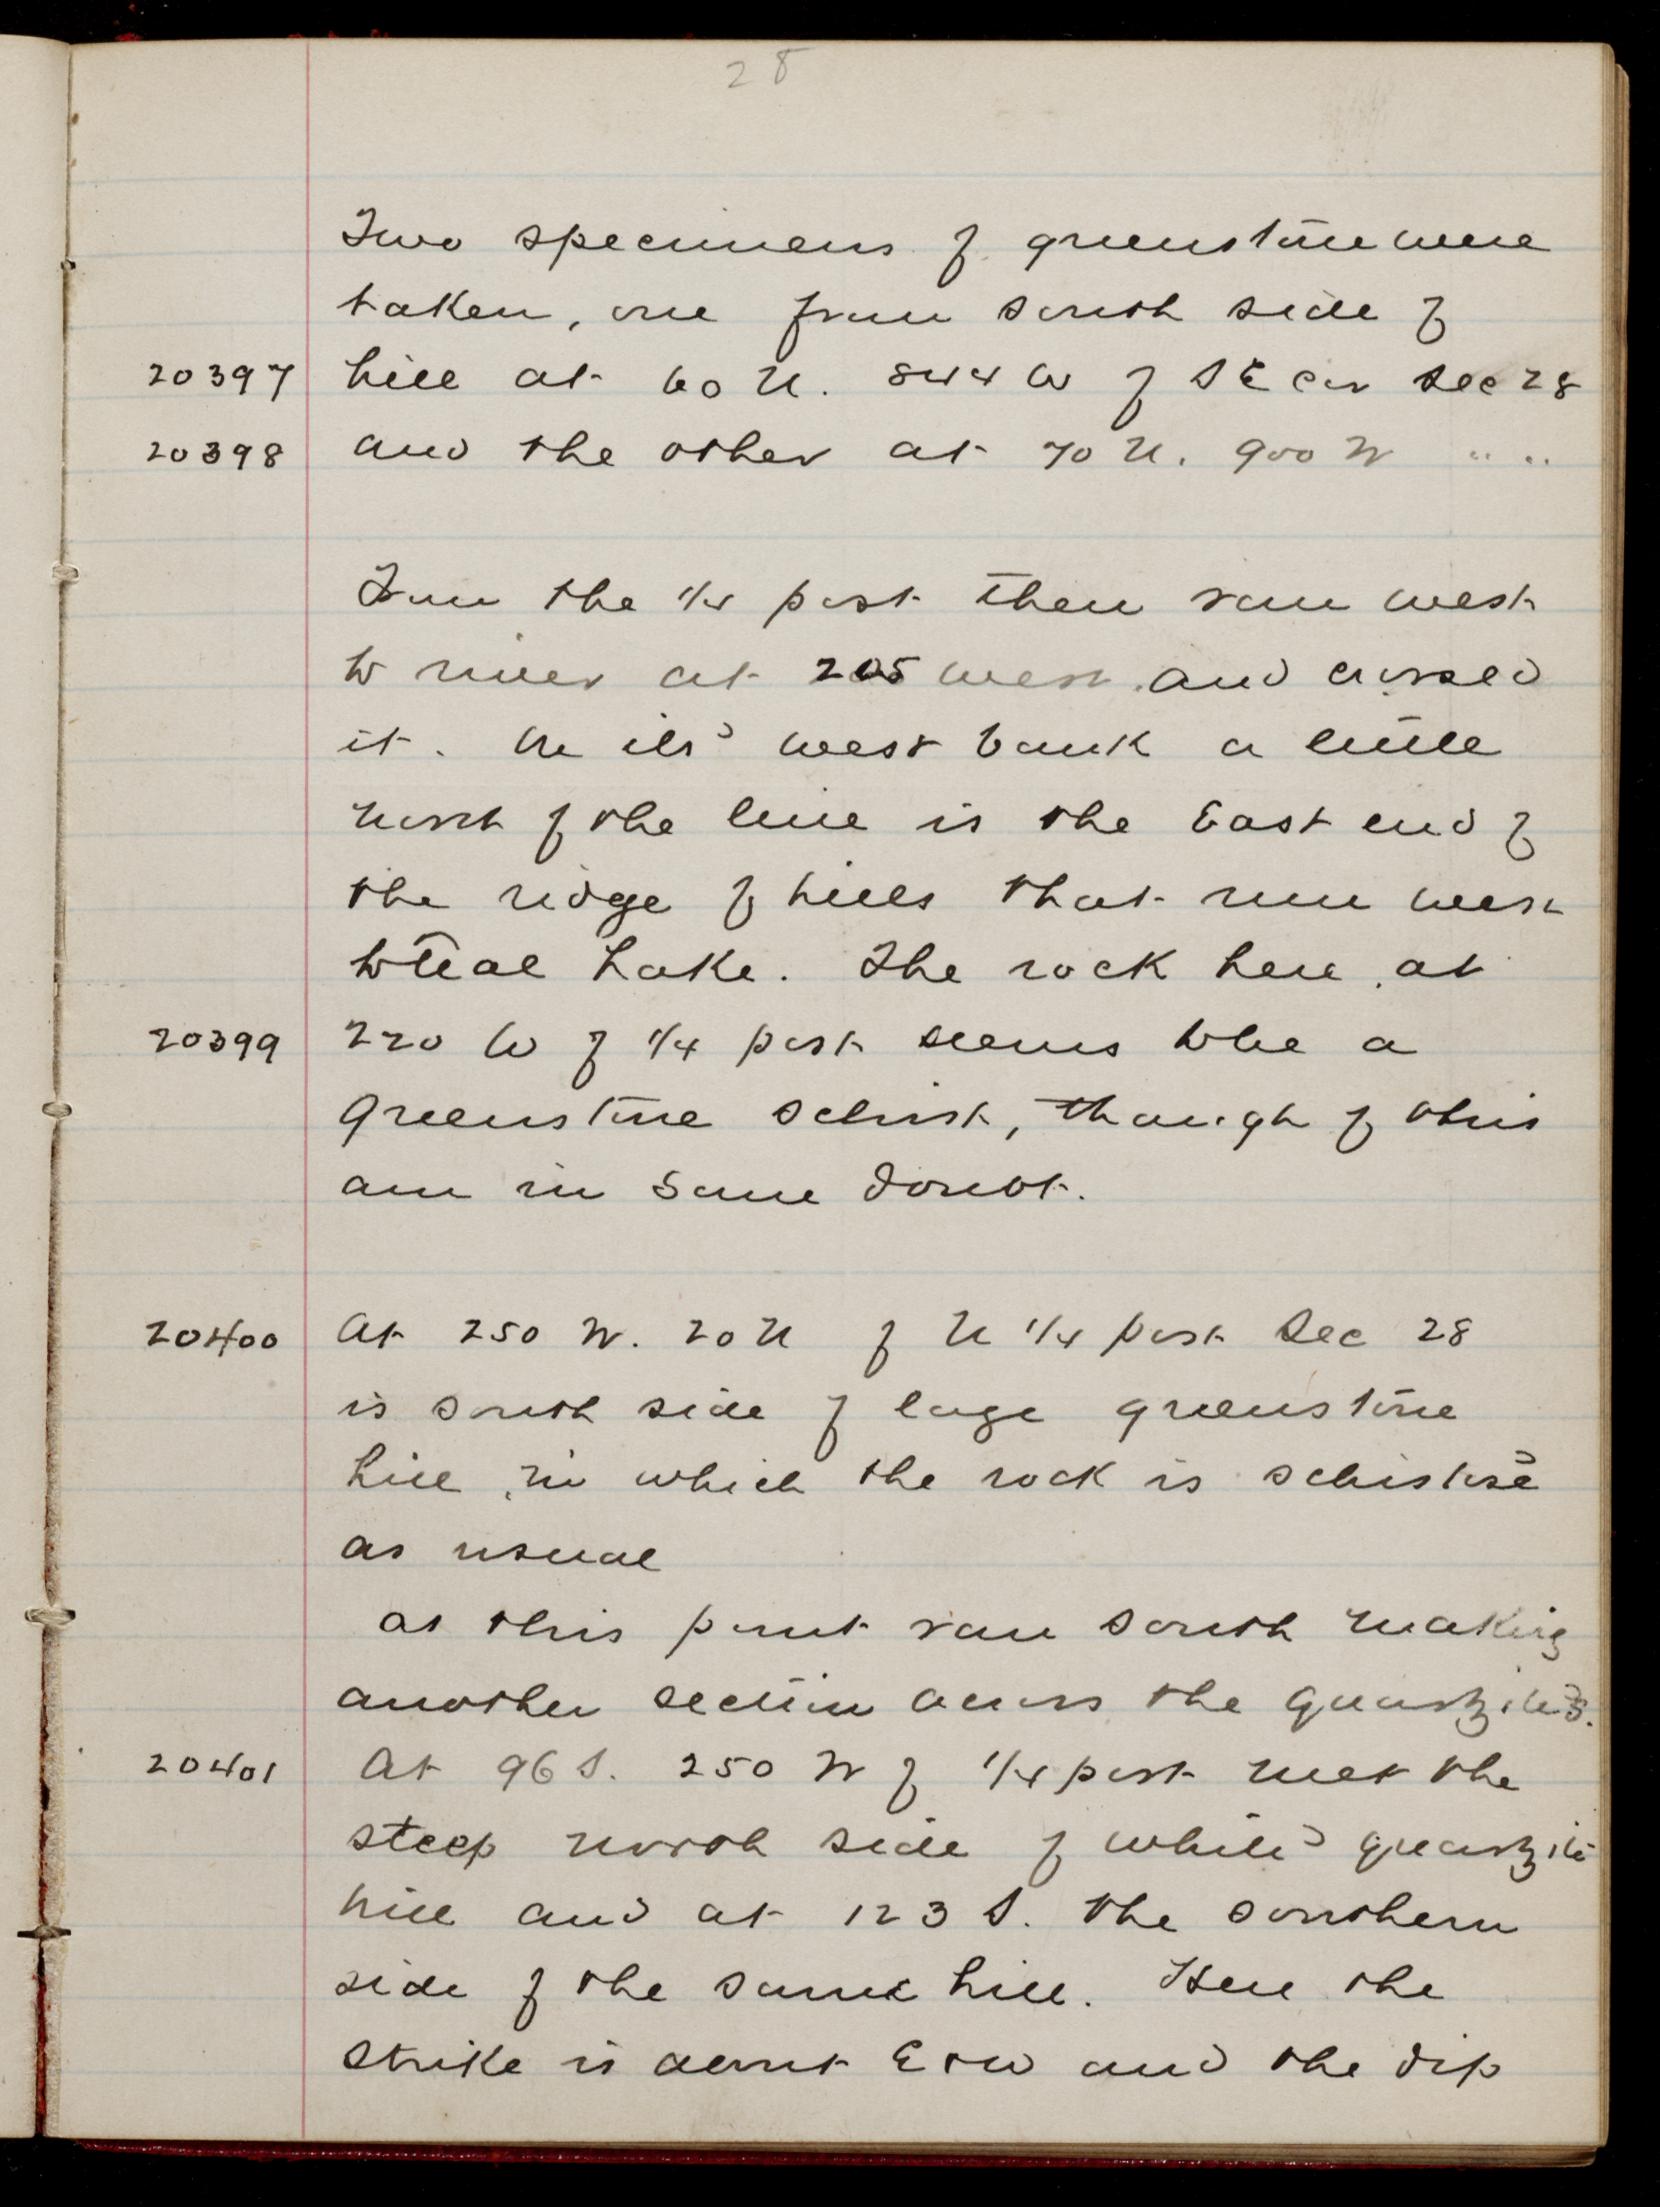 28
Two specimens of greenstone were
taken, one from south side of
20397 hill at 60 N. 844 W of SE cor Sec 28
20398 and the other at 70 N. 900 W " "
From the 1/4 post then ran west
to river at 205 west and crossed
it. On its west bank a little
north of the line is the East end of
the ridge of hills that run west
to Teal Lake. The rock here, at
20399 220 W of 1/4 post seems to be a
Greenstone schist, though of this
am in some doubt.
20400 At 250 W. 20 N of N 1/4 post Sec 28
is south side of large greenstone
hill, in which the rock is schistose
as usual
at this point ran south making
another section across the quartzites.
20401 At 96 S. 250 W of 1/4 post met the
steep north side of white quartzite
hill and at 123 S. the southern
side of the same hill. Here the
strike is about E + W and the dip